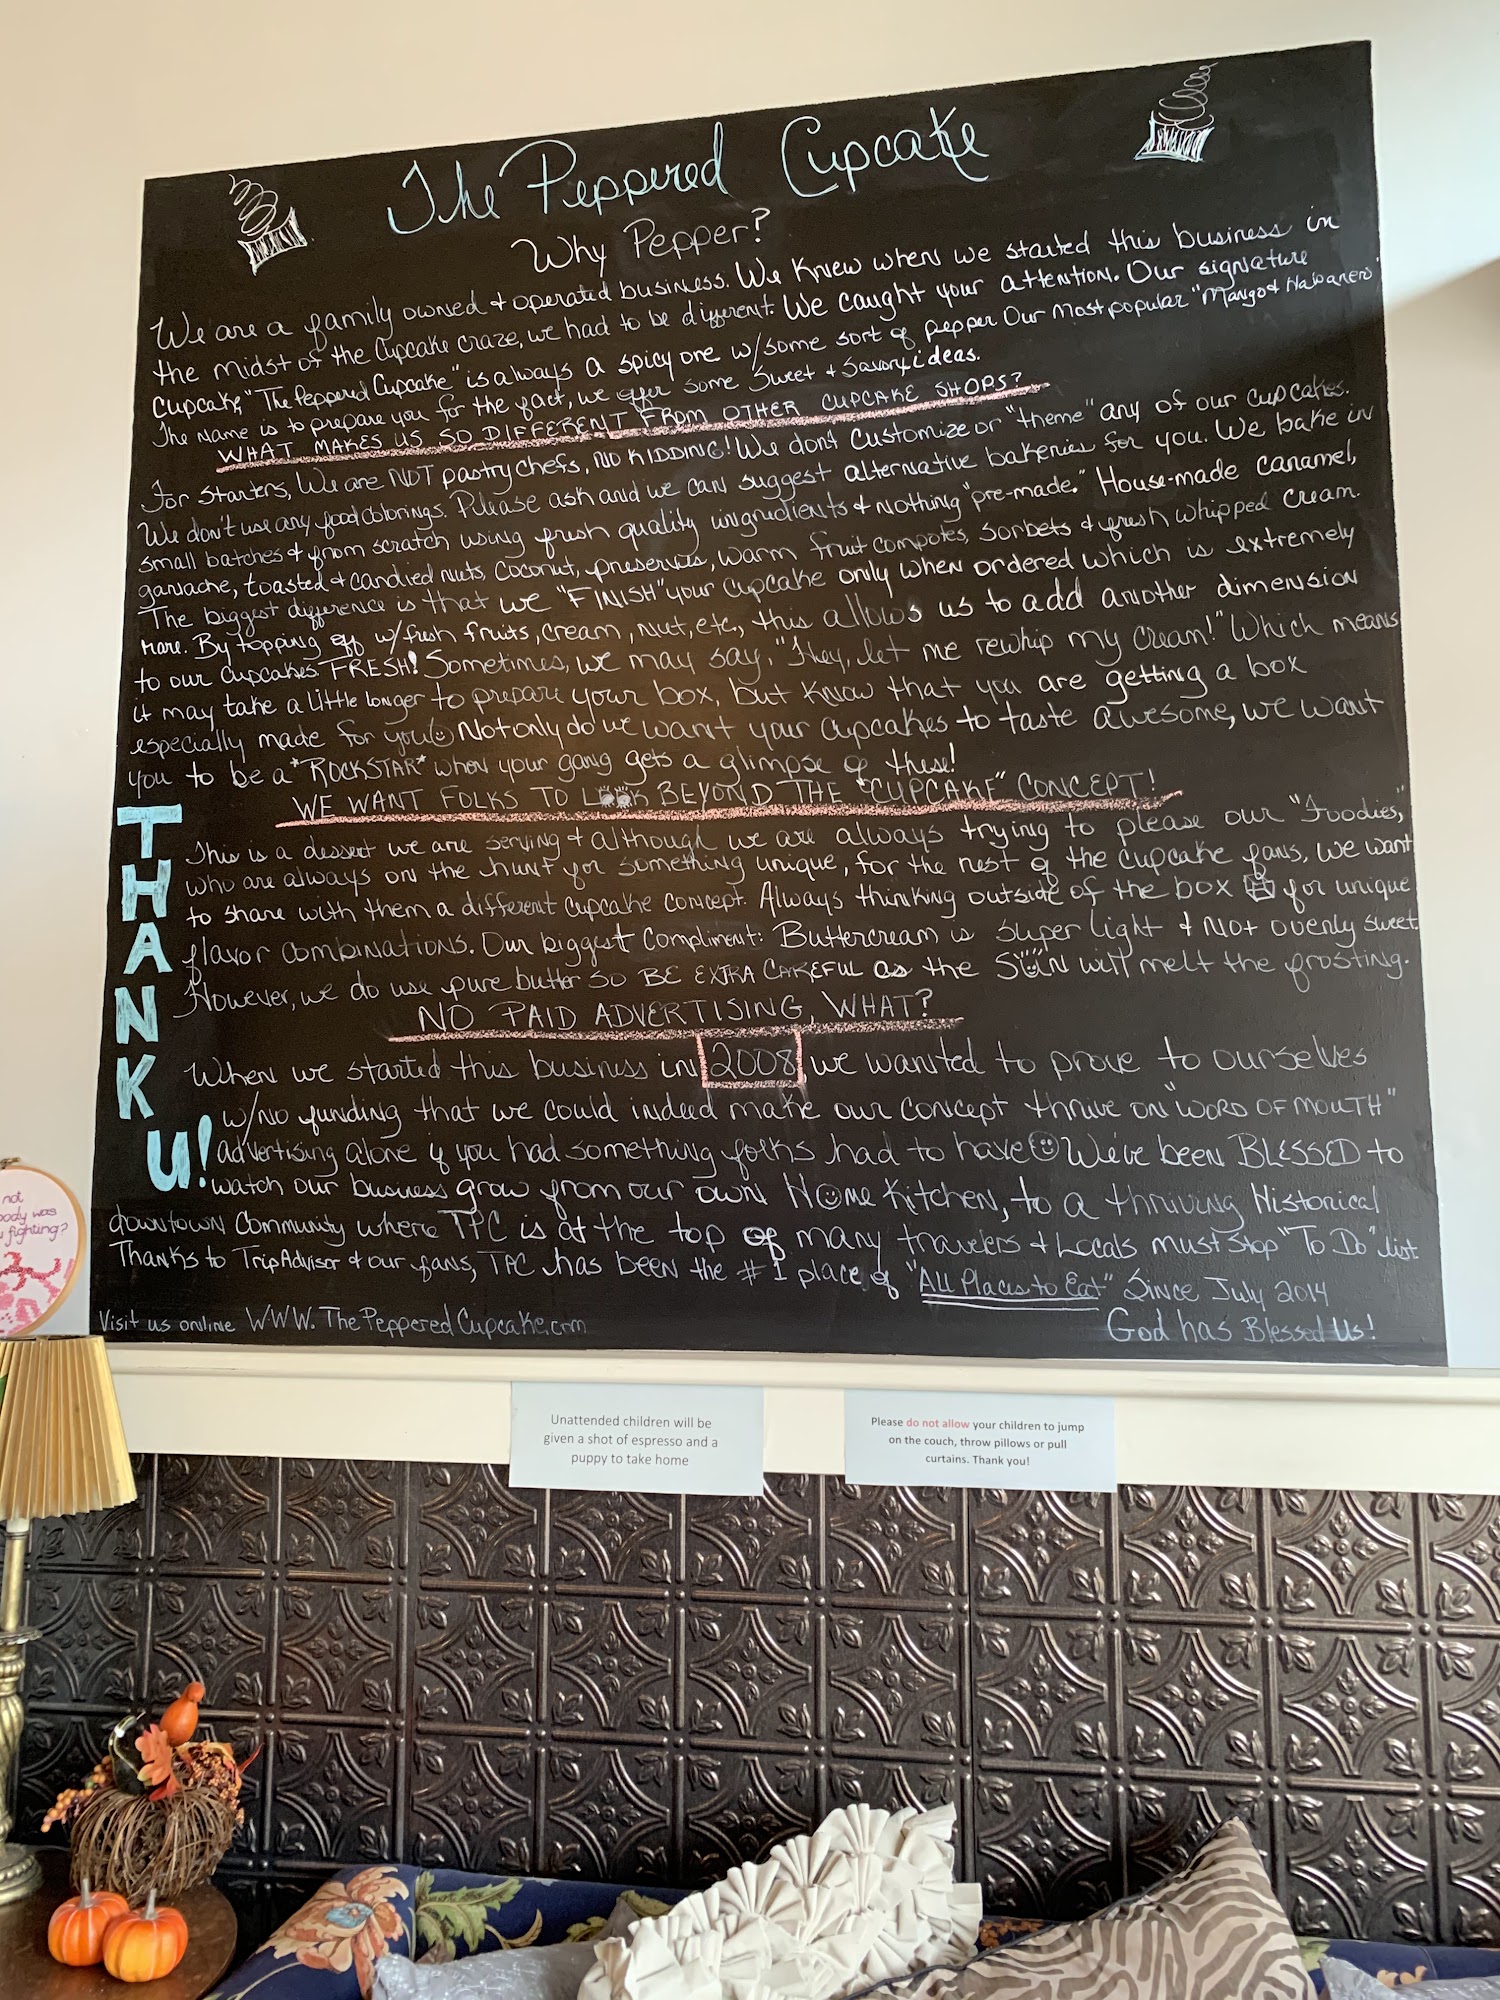 The Peppered Cupcake
Why Pepper?
We are a family owned & operated business. We knew when we started this business in
the midst of the cupcake craze, we had to be different. We caught your attention. Our signature
Cupcake, "The Peppered Cupcake" is always a spicy one w/some sort of pepper Our most popular "Mango & Habanero"
The name is to prepare you for the fact, we offer some Sweet & Savory ideas.
WHAT MAKES US SO DIFFERENT FROM OTHER CUPCAKE SHOPS?
For Starters, We are NOT pastry chefs, NO KIDDING! We dont customize or "theme" any of our cupcakes.
We don't use any food colorings. Please ask and we can suggest alternative bakeries for you. We bake in
small batches & from scratch using fresh quality ingredients & nothing "pre-made." House-made caramel,
ganache, toasted & candied nuts, coconut, preserves, warm fruit compotes, sorbets & fresh whipped cream.
The biggest difference is that we "FINISH" your cupcake only when ordered which is extremely
rare. By topping off w/fresh fruits, cream, nut, etc., this allows us to add another dimension
to our cupcakes. FRESH! Sometimes, we may say, "Hey, let me rewhip my cream!" Which means
it may take a little longer to prepare your box, but know that you are getting a box
especially made for you Not only do we want your cupcakes to taste awesome, we want
you to be a *ROCKSTAR* when your gang gets a glimpse of these!
WE WANT FOLKS TO LOOK BEYOND THE "CUPCAKE" CONCEPT!
This is a dessert we are serving & although we are always trying to please our "Foodies,"
who are always on the hunt for something unique, for the rest of the cupcake fans, we want
to share with them a different cupcake concept. Always thinking outside of the box for unique
flavor combinations. Our biggest compliment: Buttercream is super light & not overly sweet.
However, we do use pure butter SO BE EXTRA CAREFUL as the SUN will melt the frosting.
NO PAID ADVERTISING, WHAT?
When we started this business in 2008, we wanted to prove to ourselves
w/no funding that we could indeed make our concept thrive on "WORD OF MOUTH"
advertising alone if you had something folks had to have We've been BLESSED to
watch our business grow from our own Home Kitchen, to a thriving Historical
downtown community where TPC is at the top of many travelers & Locals must stop "To Do" list.
Thanks to TripAdvisor & our fans, TPC has been the #1 place of "All Places to Eat" Since July 2014
THANK U!
Visit us online WWW.ThePepperedCupcake.com
God has Blessed Us!
not
body was
fighting?
Unattended children will be
given a shot of espresso and a
puppy to take home
Please do not allow your children to jump
on the couch, throw pillows or pull
curtains. Thank you!